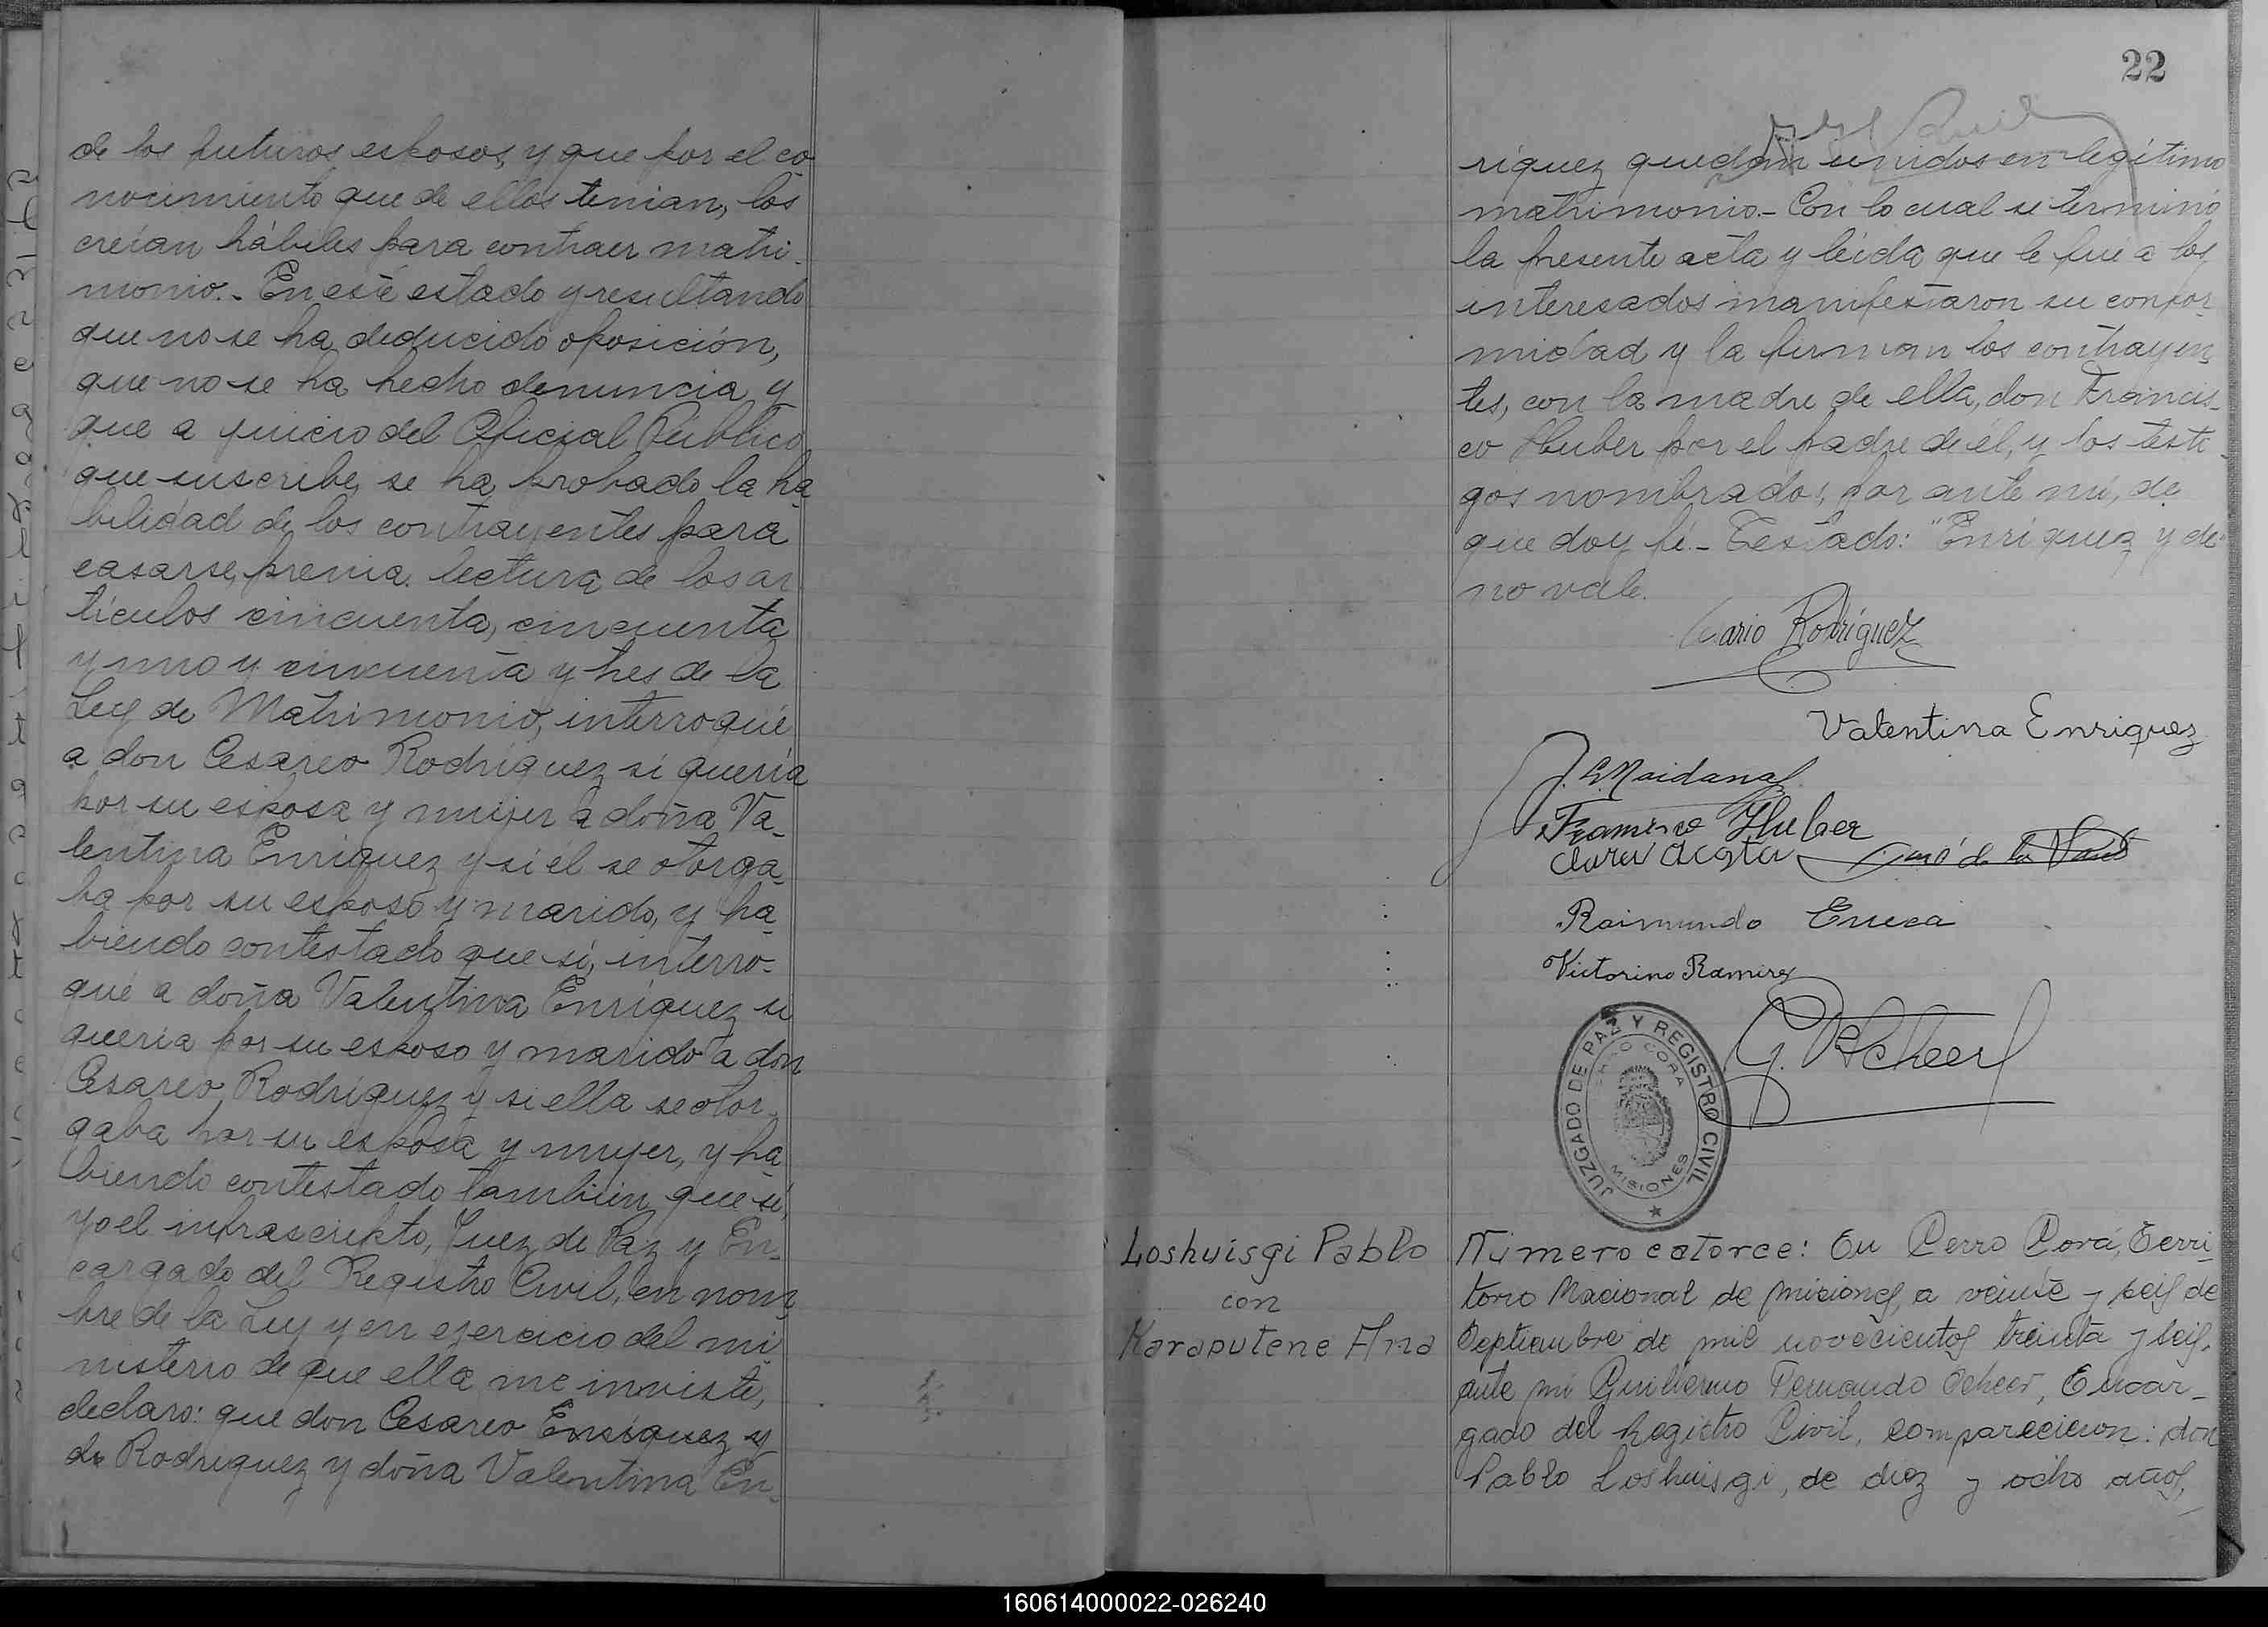 de los futuros esposos, y que por el co
nocimiento que de ellos tenian, los
creían hábiles para contraer matri-
monio.- En este estado y resultando
que no se ha deducido oposición,
que no se ha hecho denuncia y
que a juicio del Oficial Público
que suscribe, se ha probado la ha
bilidad de los contrayentes para
casarse, previa lectura de los ar
tículos cincuenta, cincuenta
y uno y cincuenta y tres de la
Ley de Matrimonio, interrogué
a don Cesareo Rodriguez si quería
por su esposa y mujer a doña Va-
lentina Enriquez y si él se otorga-
ba por su esposo y marido, y ha
biendo contestado que sí, interro-
gué a doña Valentina Enríquez si
quería por su esposo y marido a don
Cesareo Rodríguez y si ella se otor-
gaba por su esposa y mujer, y ha
biendo contestado tambien que sí,
yo el infrascripto, Juez de Paz y En-
cargado del Registro Civil, en nom
bre de la Ley y en ejercicio del mi
nisterio de que ella me inviste,
declaro: que don Cesareo Enríquez y
de Rodriguez y doña Valentina En-
22
ríquez quedan unidos en legítimo
matrimonio.- Con lo cual se terminó
la presente acta y leída que le fué a los
interesados manifestaron su confor
midad y la firman los contrayen
tes, con la madre de ella, don Francis-
co Huber por el padre de él, y los testi-
gos nombrados, por ante mí, de
que doy fé.- Testado: "Enriquez y de"
no vale.
Rodríguez
Valentina Enriquez
J. Maidana
Francisco Huber
Clara Acosta
Raimundo
Victorino Ramirez
G. F. Scheer
JUZGADO DE PAZ Y REGISTRO CIVIL
CERRO CORA
MISIONES
Loshuisgi Pablo
con
Karaputene Ana
Número catorce: En Cerro Corá, Terri
torio Nacional de Misiones, a veinte y seis de
Septiembre de mil novecientos treinta y seis,
ante mi Guillermo Fernando Scheer, Encar-
gado del Registro Civil, comparecieron: don
Pablo Loshuisgi, de diez y ocho años,
160614000022-026240